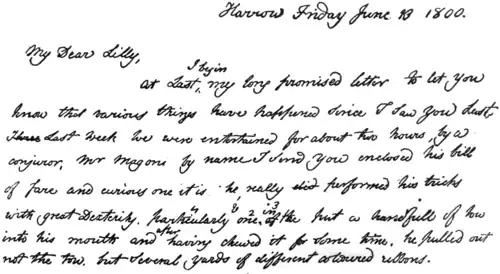 Harrow Friday June 13 1800.
My Dear Lilly,
I begin
at Last, my long promised letter to let you
know that various things have happened since I saw you Last
Last week we were entertained for about two hours, by a
conjuror, Mr Magone by name I send you enclosed his bill
of fare and curious one it is he, really did performed his tricks
with great Dexterity. particularly one, the put a handfull of tow
into his mouth and after having chewed it for some time, he pulled out
not the tow, but several yards of different coloured ribbons.